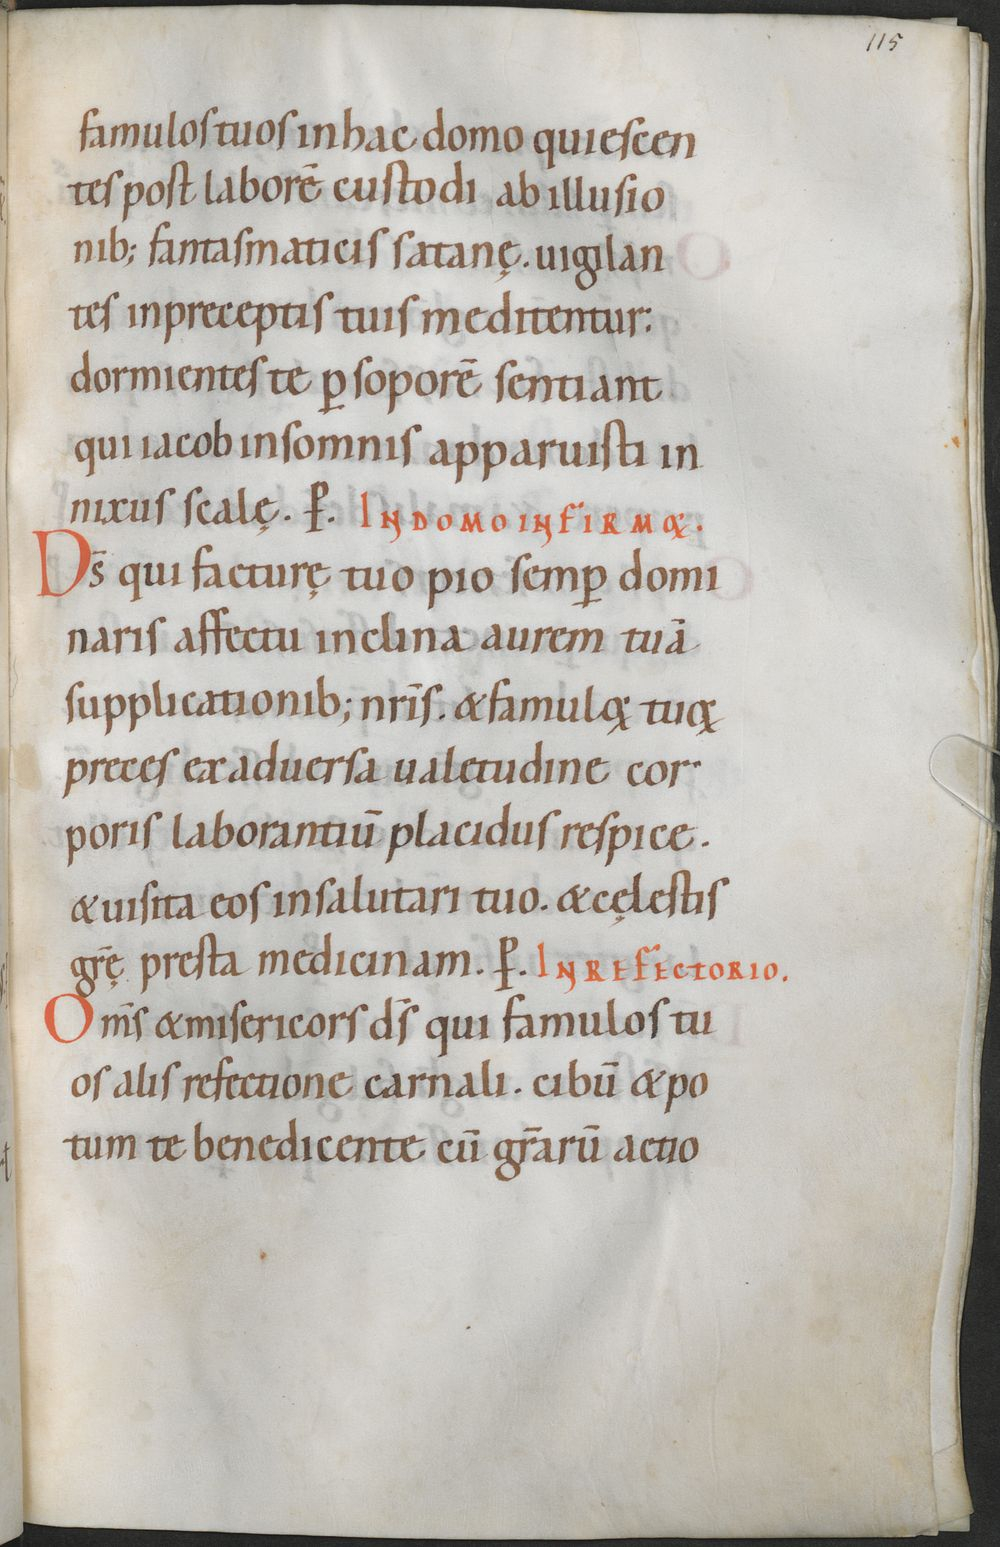 115
famulos tuos in hac domo quiescen
tes post laborē custodi ab illusio
nib; fantasmaticis satanę. uigilan
tes in preceptis tuis meditentur:
dormientes te ꝑ soporē sentiant
qui iacob in somnis apparuisti in
nixus scalę. P̄. IN DOMO INFIRMOꝜ.
Ds̄ qui facturę tuo pio semꝑ domi
naris affectu inclina aurem tuā
supplicationib; nrīs. & famuloꝝ tuoꝝ
preces ex aduersa ualetudine cor
poris laborantiū placidus respice.
& uisita eos in salutari tuo. & cęlestis
gr̄ę presta medicinam. P̄. IN REFECTORIO.
Om̄s & misericors ds̄ qui famulos tu
os alis refectione carnali. cibū & po
tum te benedicente cū gr̄arū actio